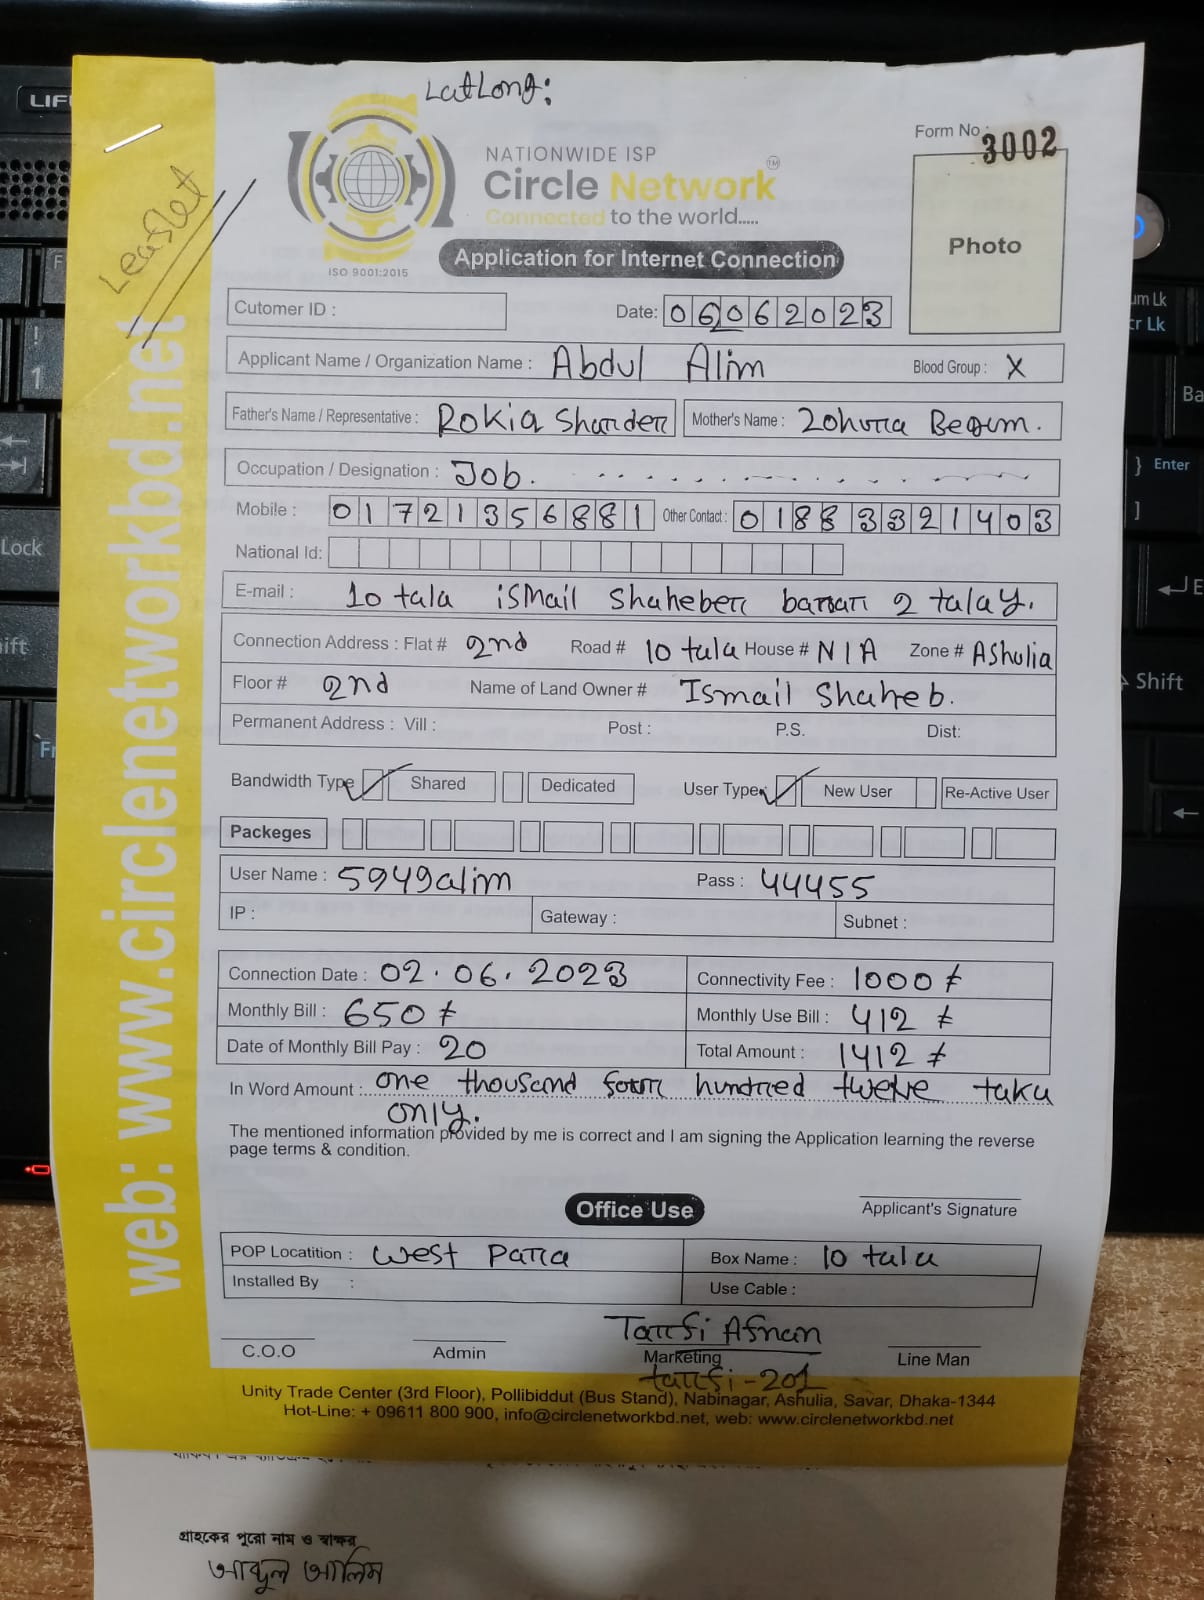 LatLong:
Form No : 3002
LIF
Leaflet
NATIONWIDE ISP
Circle Network TM
Connected to the world.....
ISO 9001:2015
Application for Internet Connection
Photo
Cutomer ID :
Date: 06062023
Applicant Name / Organization Name : Abdul Alim Blood Group : X
Father's Name / Representative : Rokia Sharder Mother's Name : Zohura Begum.
Occupation / Designation : Job.
Mobile : 01721356881 Other Contact : 01883321403
National Id:
E-mail : 10 tala ismail Shaheber barari 2 talay.
Connection Address : Flat # 2nd Road # 10 tala House # N/A Zone # Ashulia
Floor # 2nd Name of Land Owner # Ismail Shaheb.
Permanent Address : Vill : Post : P.S. Dist:
Bandwidth Type Shared Dedicated User Type: New User Re-Active User
Packeges
User Name : 5949alim Pass : 44455
IP : Gateway : Subnet :
Connection Date : 02.06.2023 Connectivity Fee : 1000 ₺
Monthly Bill : 650 ₺ Monthly Use Bill : 412 ₺
Date of Monthly Bill Pay : 20 Total Amount : 1412 ₺
In Word Amount : one thousand four hundred twelve taka
only.
The mentioned information provided by me is correct and I am signing the Application learning the reverse
page terms & condition.
Applicant's Signature
Office Use
POP Locatition : West Para Box Name : 10 tala
Installed By : Use Cable :
Tarfi Afnan
C.O.O Admin Marketing Line Man
tarfi-201
Unity Trade Center (3rd Floor), Pollibiddut (Bus Stand), Nabinagar, Ashulia, Savar, Dhaka-1344
Hot-Line: + 09611 800 900, info@circlenetworkbd.net, web: www.circlenetworkbd.net
web: www.circlenetworkbd.net
গ্রাহকের পুরো নাম ও স্বাক্ষর
আব্দুল আলিম
Lock
Enter
Shift